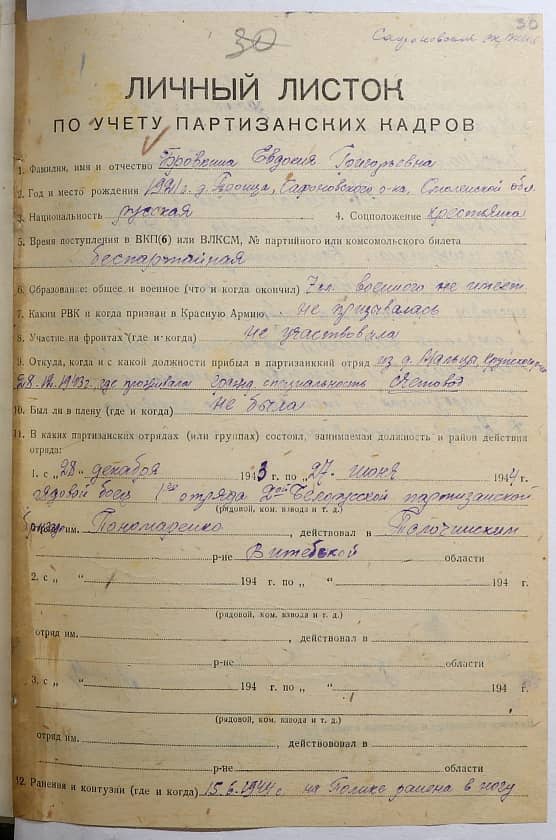 30
30
ЛИЧНЫЙ ЛИСТОК
ПО УЧЕТУ ПАРТИЗАНСКИХ КАДРОВ
1. Фамилия, имя и отчество Бровкина Евдокия Григорьевна
2. Год и место рождения д. Троица, Сафоновского р-на, Смоленской обл.
3. Национальность русская 4. Соцположение крестьянка
5. Время поступления в ВКП(б) или ВЛКСМ, № партийного или комсомольского билета
беспартийная
6. Образование общее и военное (что и когда окончил) 7 кл. военного не имеет
7. Каким РВК и когда призван в Красную Армию не призывалась
8. Участие на фронтах (где и когда) не участвовала
9. Откуда, когда и с какой должности прибыл в партизанский отряд из д.
1943г. где проживала специальность Счетовод
10. Был ли в плену (где и когда) не была
11. В каких партизанских отрядах (или группах) состоял, занимаемая должность и район действия
отряда:
1. с „28" декабря 1943 г. по „27" июня 1944 г.
рядовой боец 1го отряда 2ой Белорусской партизанской
(рядовой, ком. взвода и т. д.)
им. Пономаренко, действовал в Толочинским
р-не Витебской области
2. с „ " 194 г. по „ " 194 г.
(рядовой, ком. взвода и т. д.)
отряд им. , действовал в
р-не области
3. с „ " 194 г. по „ " 194 г.
(рядовой, ком. взвода и т. д.)
отряд им. , действововал в
р-не области
12. Ранения и контузии (где и когда) 15.6.1944 г. на района в ногу